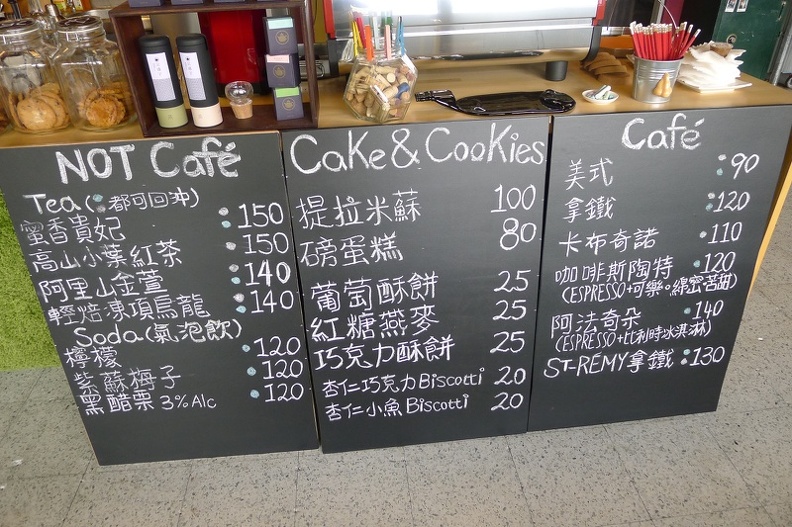 NOT Café
Tea(:都可回沖)
蜜香貴妃 :150
高山小葉紅茶 :150
阿里山金萱 :140
輕焙凍項烏龍 :140
Soda(氣泡飲)
檸檬 :120
紫蘇梅子 :120
黑醋栗 3% Alc :120
Cake & Cookies
提拉米蘇 100
磅蛋糕 80
葡萄酥餅 25
紅糖燕麥 25
巧克力酥餅 25
杏仁巧克力 Biscotti 20
杏仁小魚 Biscotti 20
Café
美式 :90
拿鐵 :120
卡布奇諾 :110
咖啡斯陶特 :120
(ESPRESSO+可樂。綿密苦甜)
阿法奇朵 :140
(ESPRESSO+比利時冰淇淋)
ST-REMY拿鐵 :130